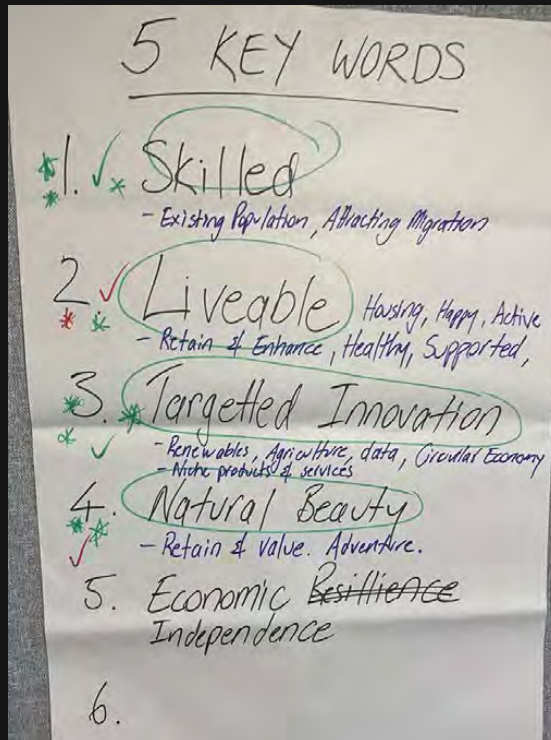 5 KEY WORDS
1. Skilled
- Existing Population, Attracting Migration
2 Liveable Housing, Happy, Active
- Retain & Enhance, Healthy, Supported,
3. Targetted Innovation
- Renewables, Agriculture, data, Circular Economy
- Niche products & services
4. Natural Beauty
- Retain & value. Adventure.
5. Economic Resillience
Independence
6.